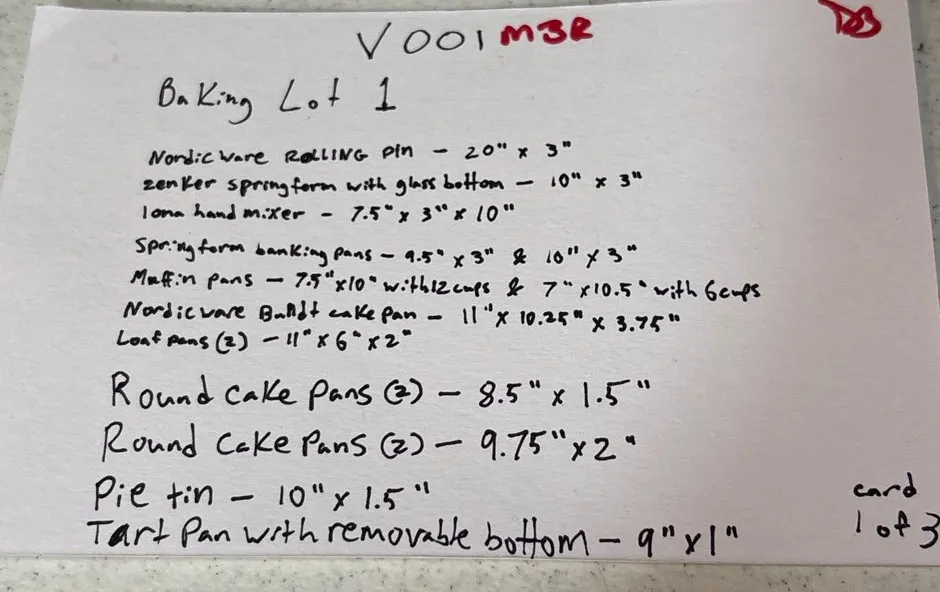 V001 M3R
Baking Lot 1
Nordic Ware ROLLING pin - 20" x 3"
zenker springform with glass bottom - 10" x 3"
Iona hand mixer - 7.5" x 3" x 10"
Springform banking pans - 9.5" x 3" & 10" x 3"
Muffin pans - 7.5" x 10" with 12 cups & 7" x 10.5" with 6 cups
Nordicware Bundt cake pan - 11" x 10.25" x 3.75"
Loaf pans (2) - 11" x 6" x 2"
Round cake pans (2) - 8.5" x 1.5"
Round Cake Pans (2) - 9.75" x 2"
Pie tin - 10" x 1.5"
Tart Pan with removable bottom - 9" x 1"
card
1 of 3